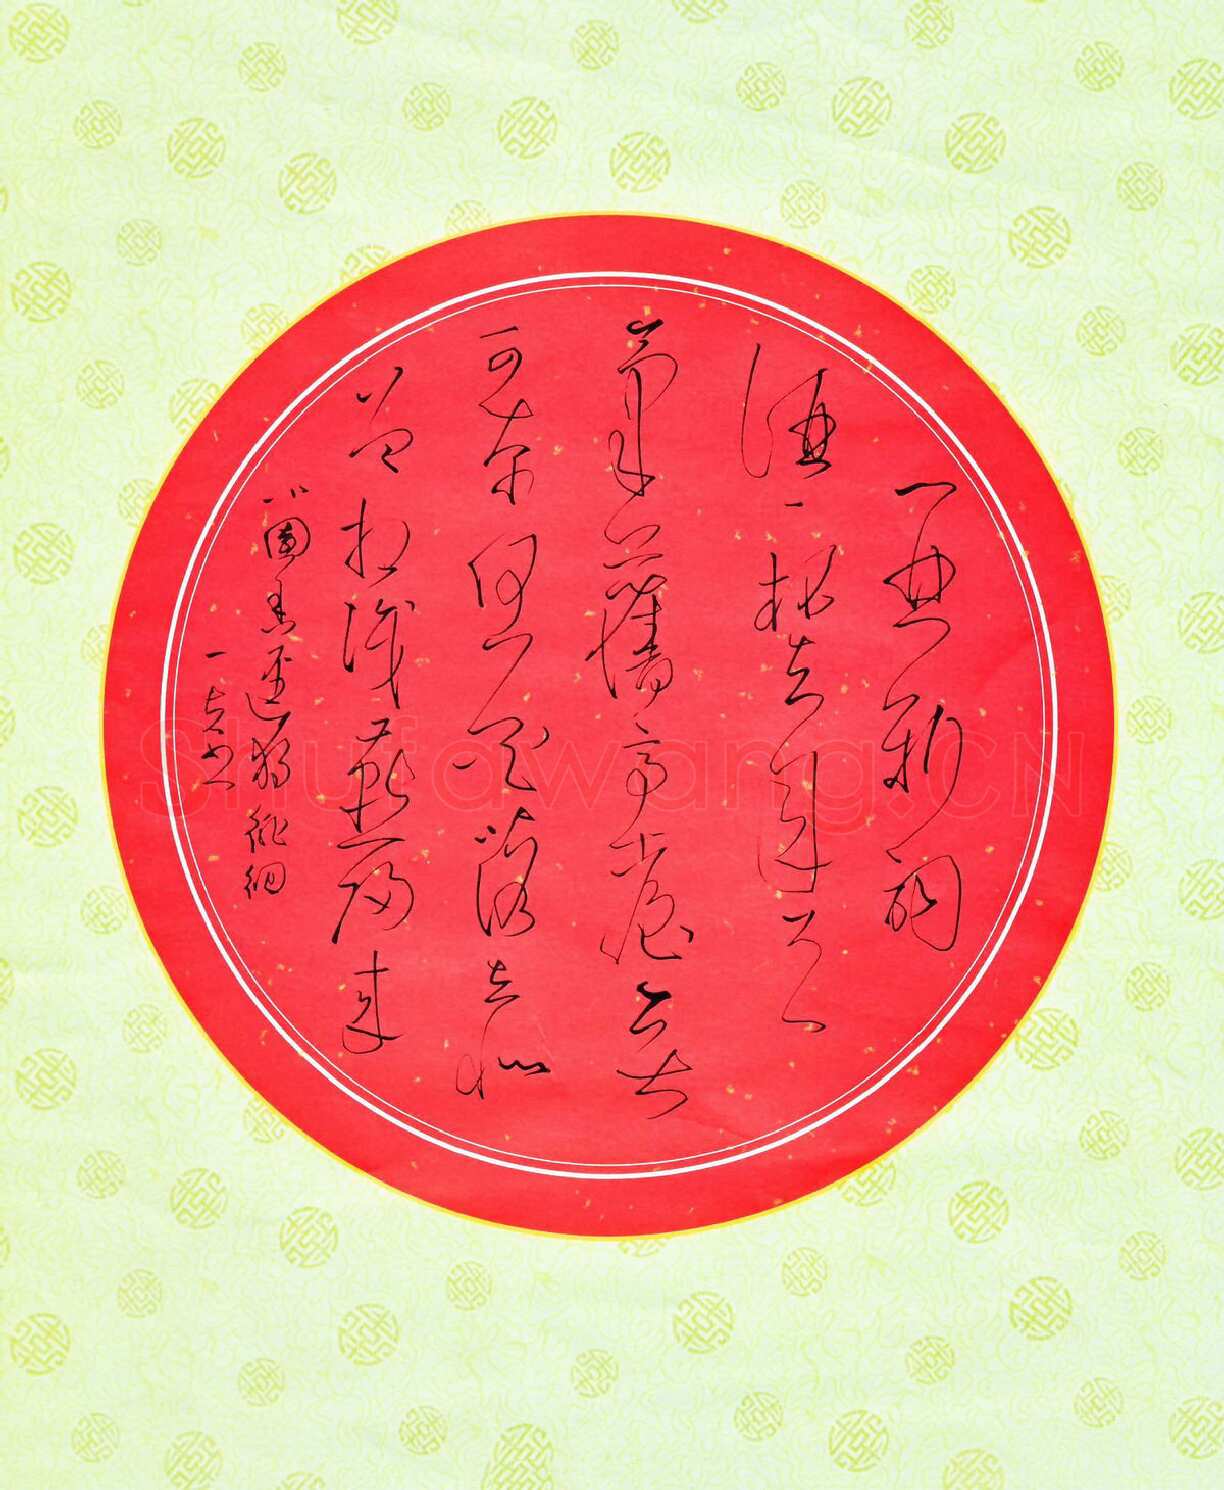 一曲新词
酒一杯去年天
气旧亭台夕
阳西下几时
回无可奈何花落去似
曾相识燕归来
小园香径独徘徊
一
Shufawang.CN